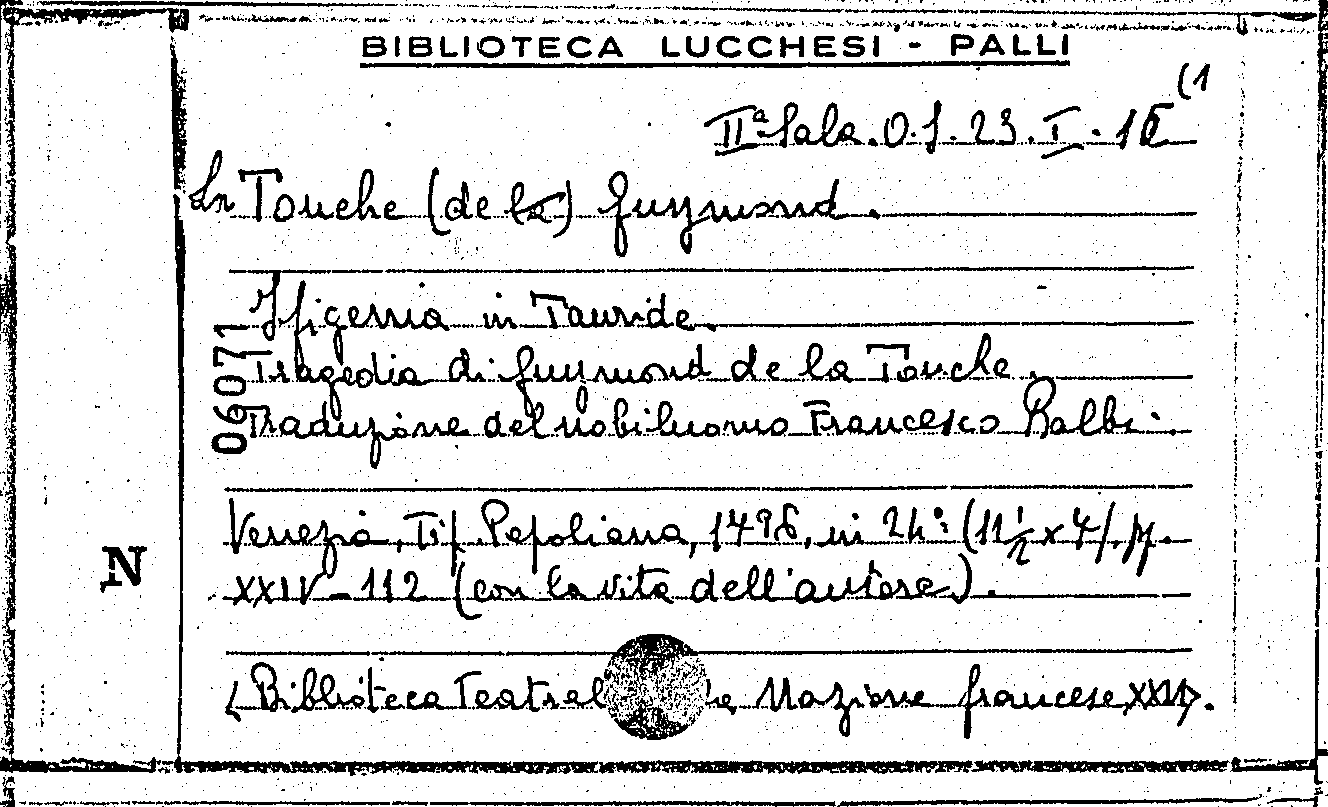 BIBLIOTECA LUCCHESI - PALLI
(1
IIª Sala. O. J. 23. I. 16
La Touche (de la) Guymond.
Ifigenia in Tauride.
06071
Tragedia di Guymond de la Touche.
Traduzione del nobiluomo Francesco Balbi.
Venezia, Tip. Pepoliana, 1796, in 24°: (11 1/2 x 7), pp.
XXIV-112 (con la vita dell'autore).
N
(Biblioteca Teatral Nazione francese,